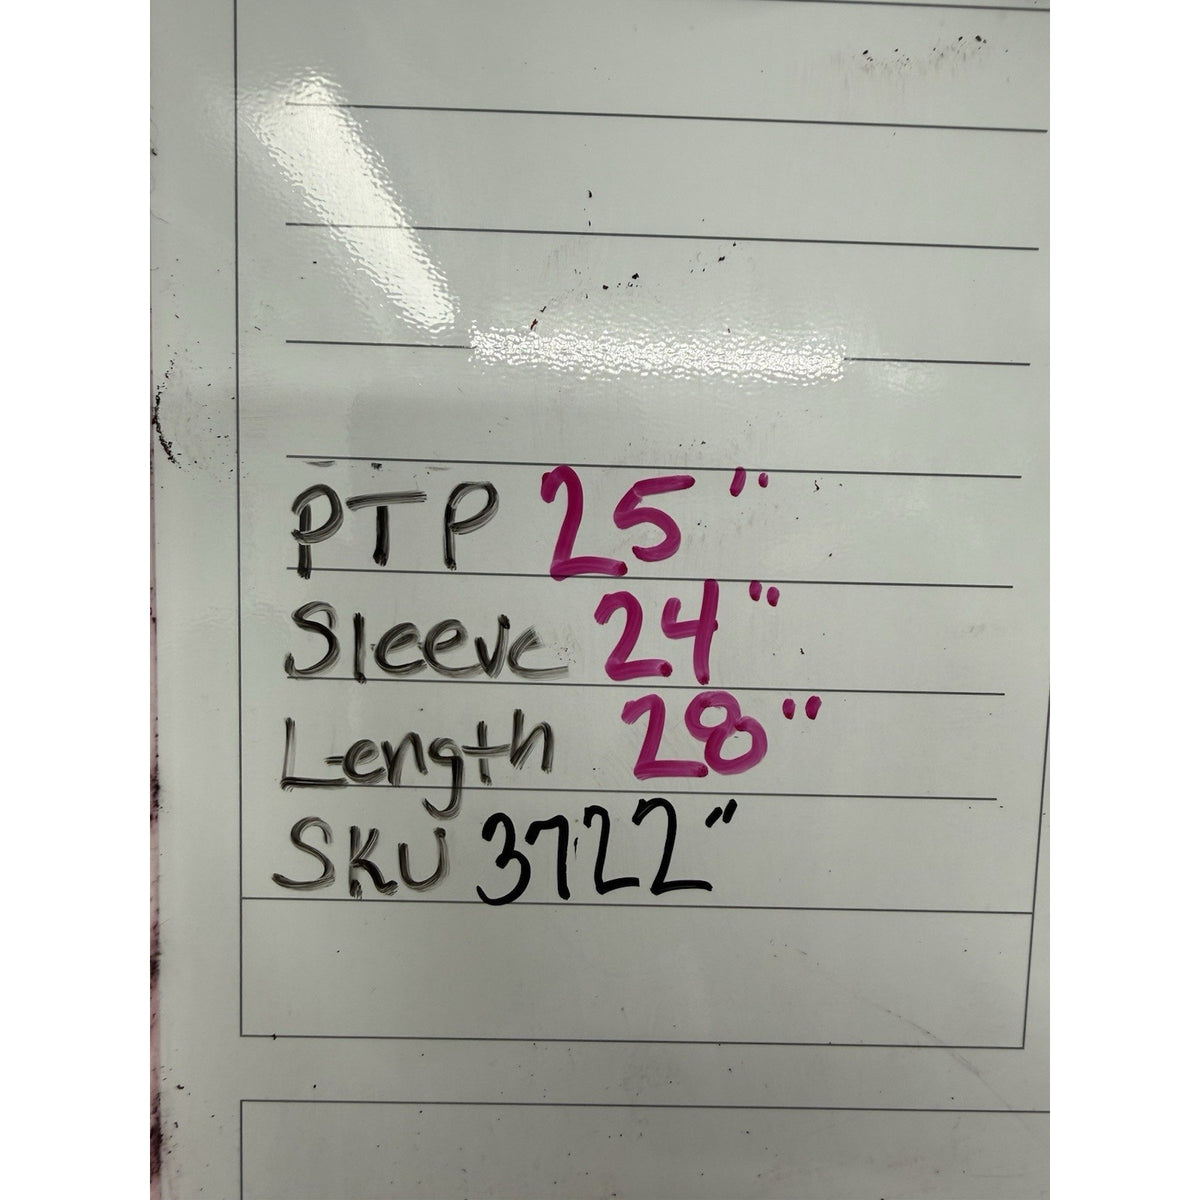 PTP 25"
Sleeve 24"
Length 28"
SKU 3722"